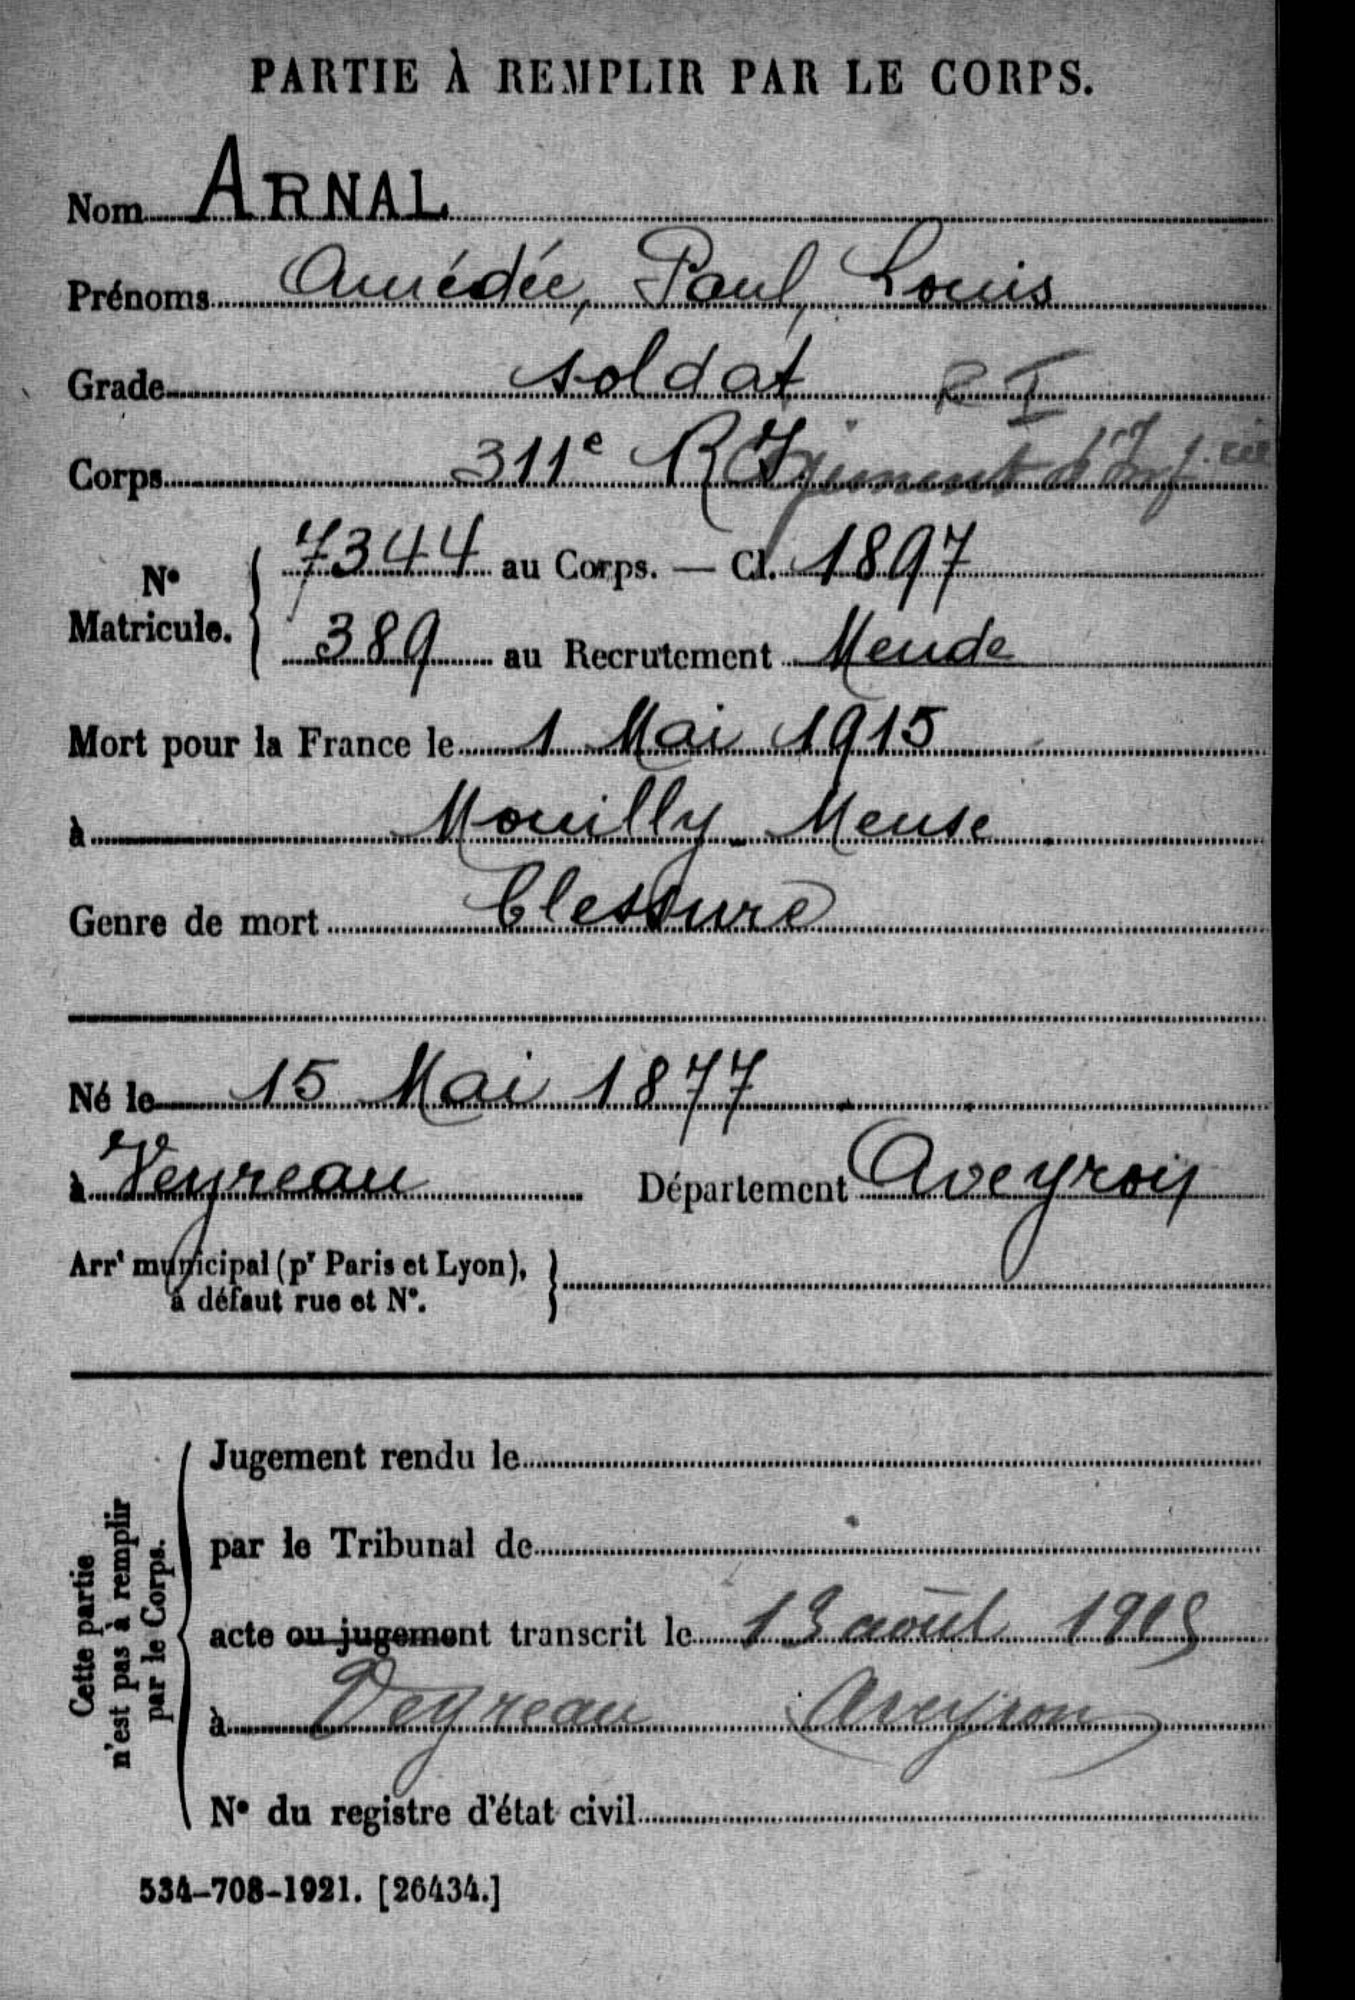 PARTIE À REMPLIR PAR LE CORPS.
Nom ARNAL
Prénoms Amédée, Paul, Louis
Grade soldat R I
Corps 311e R I Régiment d'Inf.rie
No Matricule. { 7344 au Corps. — Cl. 1897
389 au Recrutement Mende
Mort pour la France le 1 Mai 1915
à Mouilly Meuse
Genre de mort blessure
Né le 15 Mai 1877
à Veyreau Département Aveyron
Arrt municipal (pr Paris et Lyon), }
à défaut rue et No.
Cette partie
n'est pas à remplir
par le Corps.
Jugement rendu le
par le Tribunal de
acte ou jugement transcrit le 13 août 1915
à Veyreau Aveyron
No du registre d'état civil
534-708-1921. [26434.]